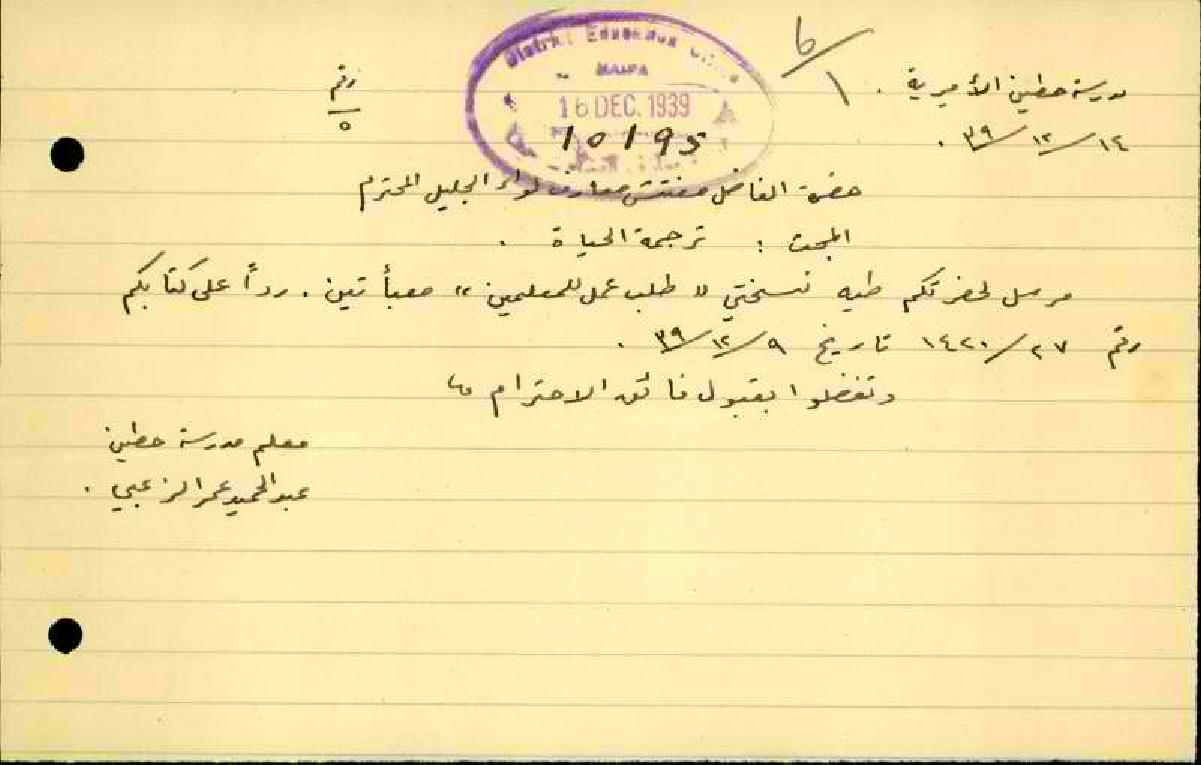 مدرسة حطين الأميرية .
١٤/١٢/٣٩ .
رقم
٥
District Education Office
HAIFA
16 DEC. 1939
10195
حضرة الفاضل مفتش معارف لواء الجليل المحترم
المبحث : ترجمة الحياة .
مرسل لحضرتكم طيه نسختي " طلب عمل للمعلمين " معبأتين . رداً على كتابكم
رقم ١٤٢٠/٢٧ تاريخ ٣٩/١٢/٩ .
وتفضلوا بقبول فائق الاحترام
معلم مدرسة حطين
عبد الحميد عمر الزعبي .